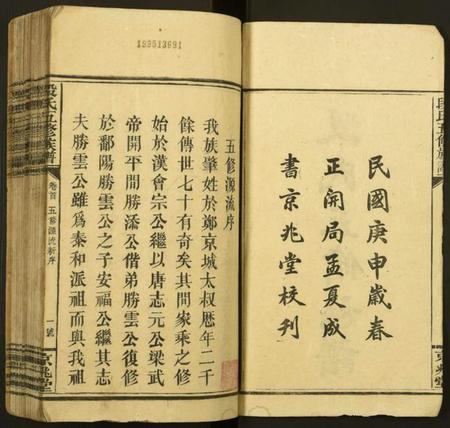 民國庚申歲春
正開局孟夏成
書京兆堂校刋
段氏五修族譜
京兆堂
五修源流序
我族肇姓於鄭京城太叔歷年二千
餘傳世七十有奇矣其間家乘之修
始於漢會宗公繼以唐志元公梁武
帝開平間勝添公偕弟勝雲公復修
於鄱陽勝雲公之子安福公繼其志
夫勝雲公雖爲泰和派祖而與我祖
段氏五修族譜
卷首
五修源流新序
一號
京兆堂
199513691